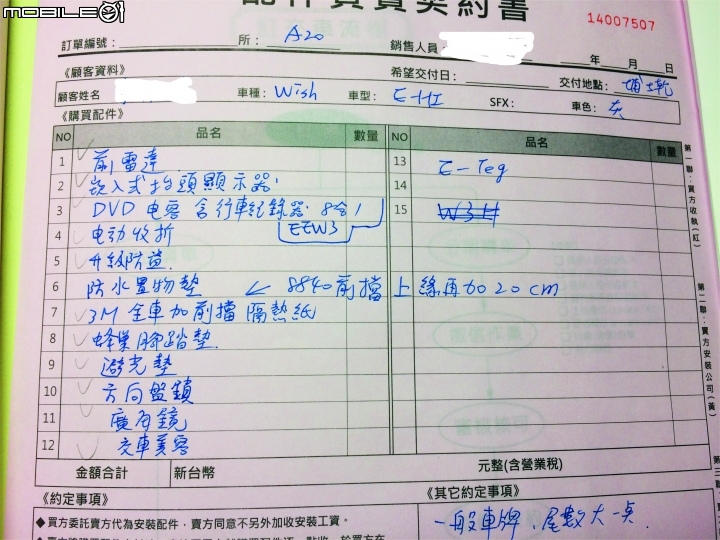 mobile01
配件買賣契約書
14007507
訂單編號： 所： A20 銷售人員
年 月 日
《顧客資料》 希望交付日： 交付地點： 埔墘
顧客姓名 車種： Wish 車型： E-HI SFX： 車色： 灰
《購買配件》
NO 品名 數量 NO 品名 數量
1 前雷達 13 E-Teg
2 崁入式抬頭顯示器 14
3 DVD 電容 含行車紀錄器 8合1 15 W3H
EEW3
4 电动收折
5 升級防盜
6 防水置物墊 ↙ 8840前擋上緣再加20cm
7 3M 全車加前擋隔熱紙
8 蜂巢腳踏墊
9 避光墊
10 方向盤鎖
11 廣角鏡
12 交車美容
金額合計 新台幣 元整(含營業稅)
《約定事項》 《其它約定事項》
◆買方委託賣方代為安裝配件，賣方同意不另外加收安裝工資。
一般車牌，尾數大一点.
第一聯：買方收執(紅)
第二聯：賣方安裝公司(黃)